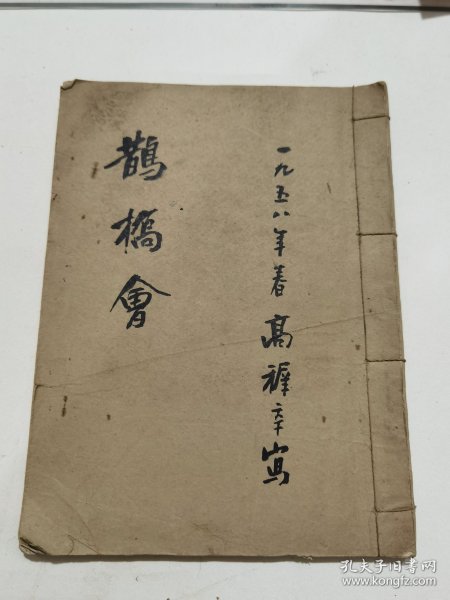 一九五八年春高禪卒寫
鵲橋會
孔夫子旧书网
www.kongfz.com